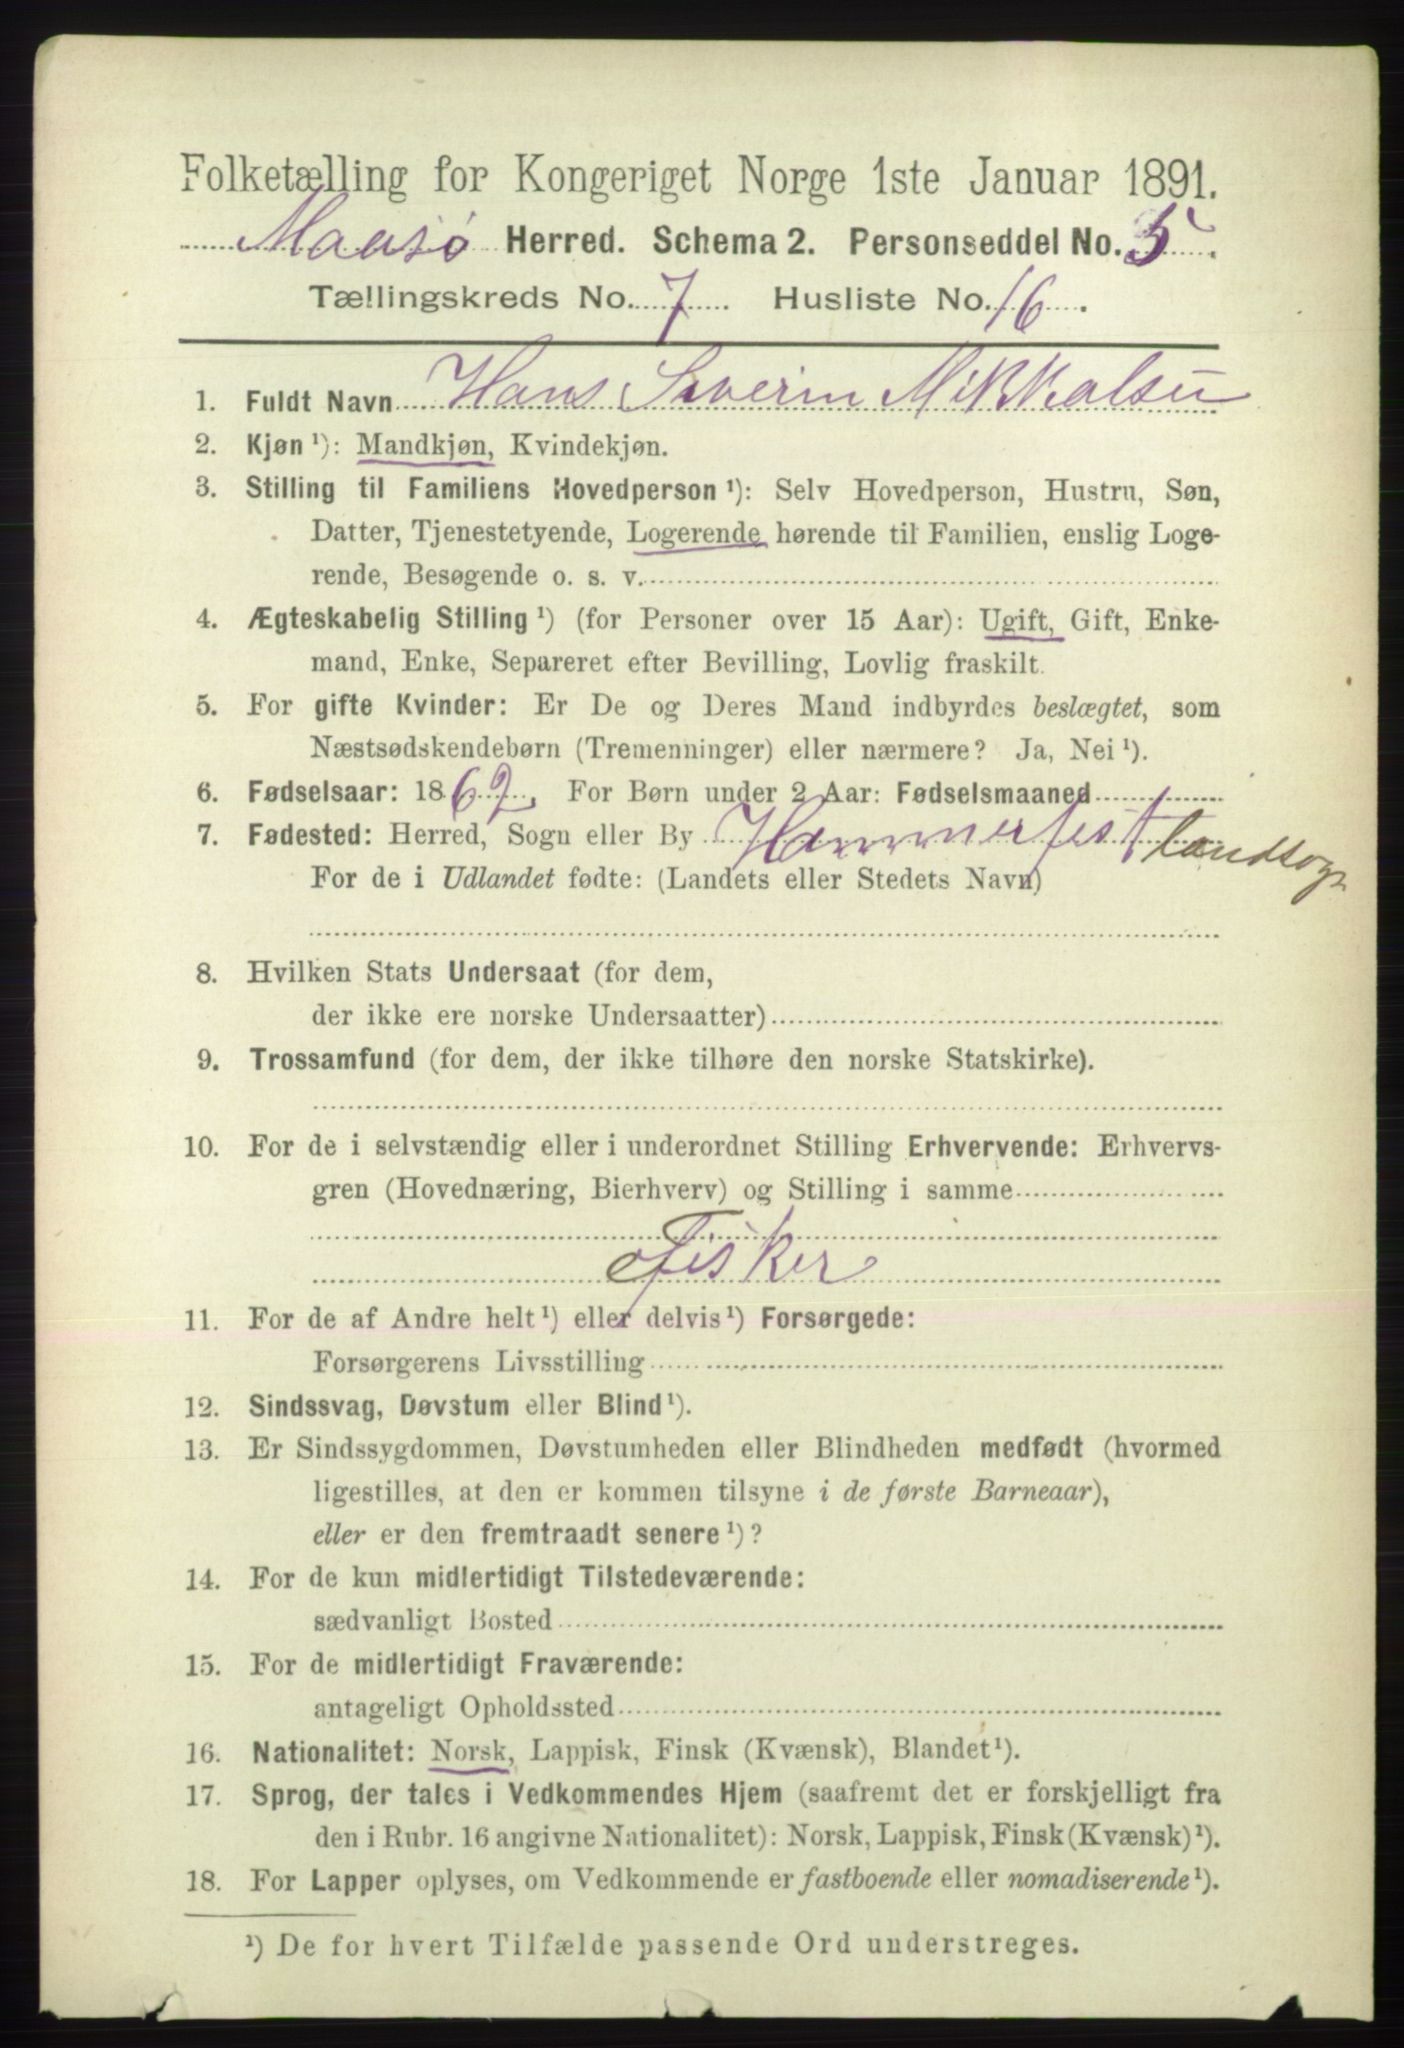 Folketælling for Kongeriget Norge 1ste Januar 1891.
Maasø Herred. Schema 2. Personseddel No. 5.
Tællingskreds No. 7. Husliste No. 16.
1. Fuldt Navn Hans Severin Mikkalsen
2. Kjøn ¹): Mandkjøn, Kvindekjøn.
3. Stilling til Familiens Hovedperson ¹): Selv Hovedperson, Hustru, Søn,
Datter, Tjenestetyende, Logerende hørende til Familien, enslig Loge-
rende, Besøgende o. s. v.
4. Ægteskabelig Stilling ¹) (for Personer over 15 Aar): Ugift, Gift, Enke-
mand, Enke, Separeret efter Bevilling, Lovlig fraskilt.
5. For gifte Kvinder: Er De og Deres Mand indbyrdes beslægtet, som
Næstsødskendebørn (Tremenninger) eller nærmere? Ja, Nei ¹).
6. Fødselsaar: 1862. For Børn under 2 Aar: Fødselsmaaned
7. Fødested: Herred, Sogn eller By Hammerfest landsogn
For de i Udlandet fødte: (Landets eller Stedets Navn)
8. Hvilken Stats Undersaat (for dem,
der ikke ere norske Undersaatter)
9. Trossamfund (for dem, der ikke tilhøre den norske Statskirke).
10. For de i selvstændig eller i underordnet Stilling Erhvervende: Erhvervs-
gren (Hovednæring, Bierhverv) og Stilling i samme
Fisker
11. For de af Andre helt ¹) eller delvis ¹) Forsørgede:
Forsørgerens Livsstilling
12. Sindssvag, Døvstum eller Blind ¹).
13. Er Sindssygdommen, Døvstumheden eller Blindheden medfødt (hvormed
ligestilles, at den er kommen tilsyne i de første Barneaar),
eller er den fremtraadt senere ¹)?
14. For de kun midlertidigt Tilstedeværende:
sædvanligt Bosted
15. For de midlertidigt Fraværende:
antageligt Opholdssted
16. Nationalitet: Norsk, Lappisk, Finsk (Kvænsk), Blandet ¹).
17. Sprog, der tales i Vedkommendes Hjem (saafremt det er forskjelligt fra
den i Rubr. 16 angivne Nationalitet): Norsk, Lappisk, Finsk (Kvænsk) ¹).
18. For Lapper oplyses, om Vedkommende er fastboende eller nomadiserende ¹).
¹) De for hvert Tilfælde passende Ord understreges.